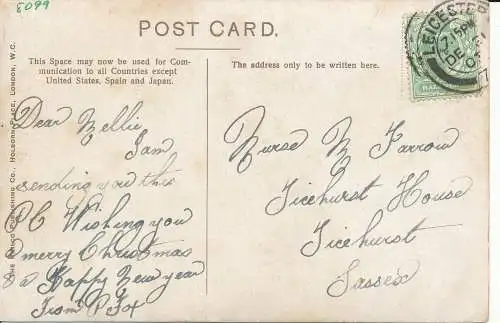 8099
POST CARD.
This Space may now be used for Com-
munication to all Countries except
United States, Spain and Japan.
The address only to be written here.
LEICESTER
7 15 PM
DE
Dear Nellie
Iam
sending you this
PC Wishing you
a merry Christmas
& a Happy New year
From P. Fox
Nurse N Farrow
Ticehurst House
Ticehurst
Sussex
PUBLISHING CO., HOLBORN PLACE, LONDON, W.C.